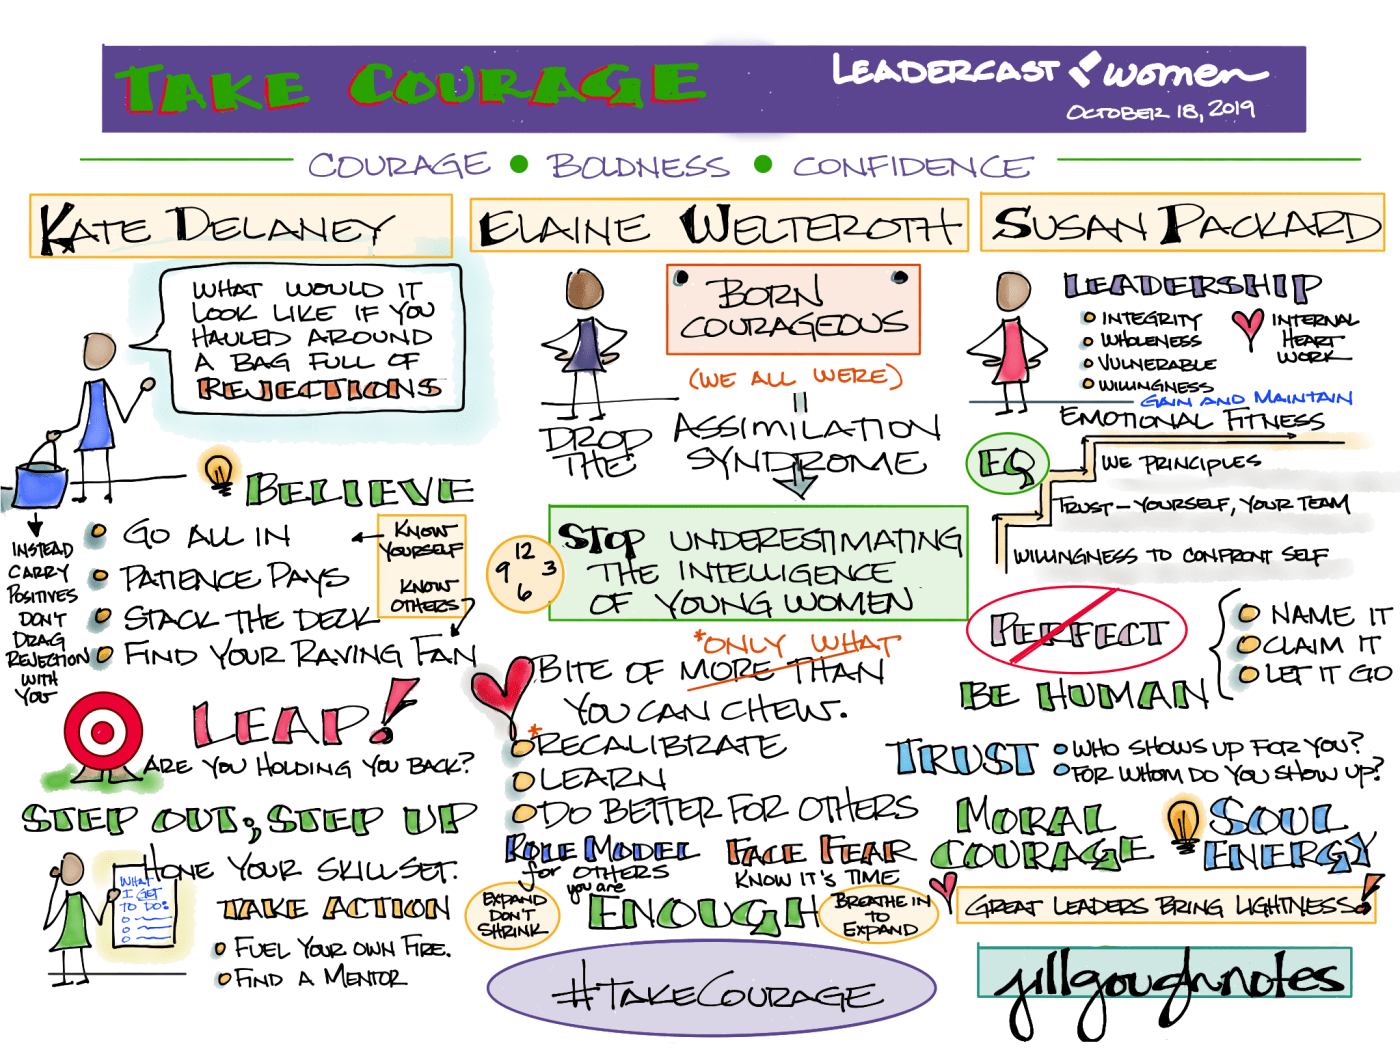 TAKE COURAGE
LEADERCAST women
OCTOBER 18, 2019
COURAGE • BOLDNESS • CONFIDENCE
KATE DELANEY
WHAT WOULD IT
LOOK LIKE IF YOU
HAULED AROUND
A BAG FULL OF
REJECTIONS
BELIEVE
INSTEAD
CARRY
POSITIVES
DON'T
DRAG
REJECTION
WITH
YOU
GO ALL IN
PATIENCE PAYS
STACK THE DECK
FIND YOUR RAVING FAN
KNOW
YOURSELF
KNOW
OTHERS
LEAP!
ARE YOU HOLDING YOU BACK?
STEP OUT; STEP UP
HONE YOUR SKILLSET.
WHAT
I GET
TO DO:
TAKE ACTION
FUEL YOUR OWN FIRE.
FIND A MENTOR
ELAINE WELTEROTH
BORN
COURAGEOUS
(WE ALL WERE)
DROP
THE
ASSIMILATION
SYNDROME
12
9 3
6
STOP UNDERESTIMATING
THE INTELLIGENCE
OF YOUNG WOMEN
*ONLY WHAT
BITE OF MORE THAN
YOU CAN CHEW.
*RECALIBRATE
LEARN
DO BETTER FOR OTHERS
ROLE MODEL
for OTHERS
FACE FEAR
KNOW IT'S TIME
EXPAND
DON'T
SHRINK
you are
ENOUGH
BREATHE IN
TO
EXPAND
#TAKECOURAGE
SUSAN PACKARD
LEADERSHIP
INTEGRITY
WHOLENESS
VULNERABLE
WILLINGNESS
INTERNAL
HEART
WORK
GAIN AND MAINTAIN
EMOTIONAL FITNESS
EQ
WE PRINCIPLES
TRUST – YOURSELF, YOUR TEAM
WILLINGNESS TO CONFRONT SELF
PERFECT
BE HUMAN
NAME IT
CLAIM IT
LET IT GO
TRUST
WHO SHOWS UP FOR YOU?
FOR WHOM DO YOU SHOW UP?
MORAL
COURAGE
SOUL
ENERGY
GREAT LEADERS BRING LIGHTNESS!
jillgoughnotes